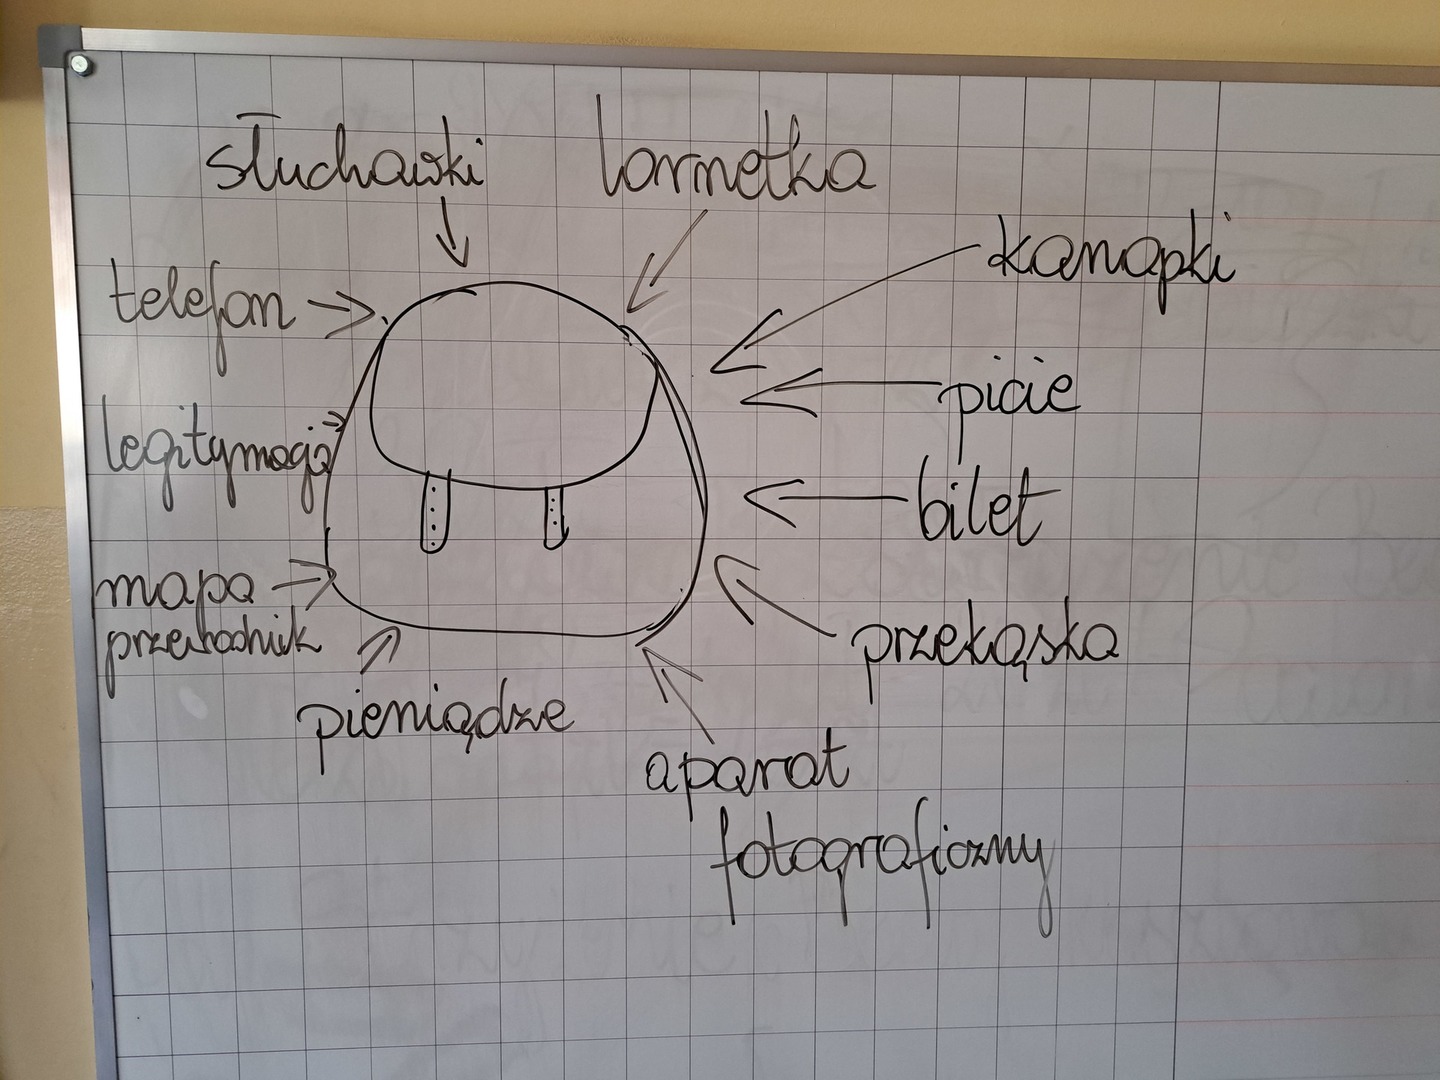 słuchawki
lornetka
kanapki
telefon
picie
legitymacja
bilet
mapa
przewodnik
przekąska
pieniądze
aparat
fotograficzny